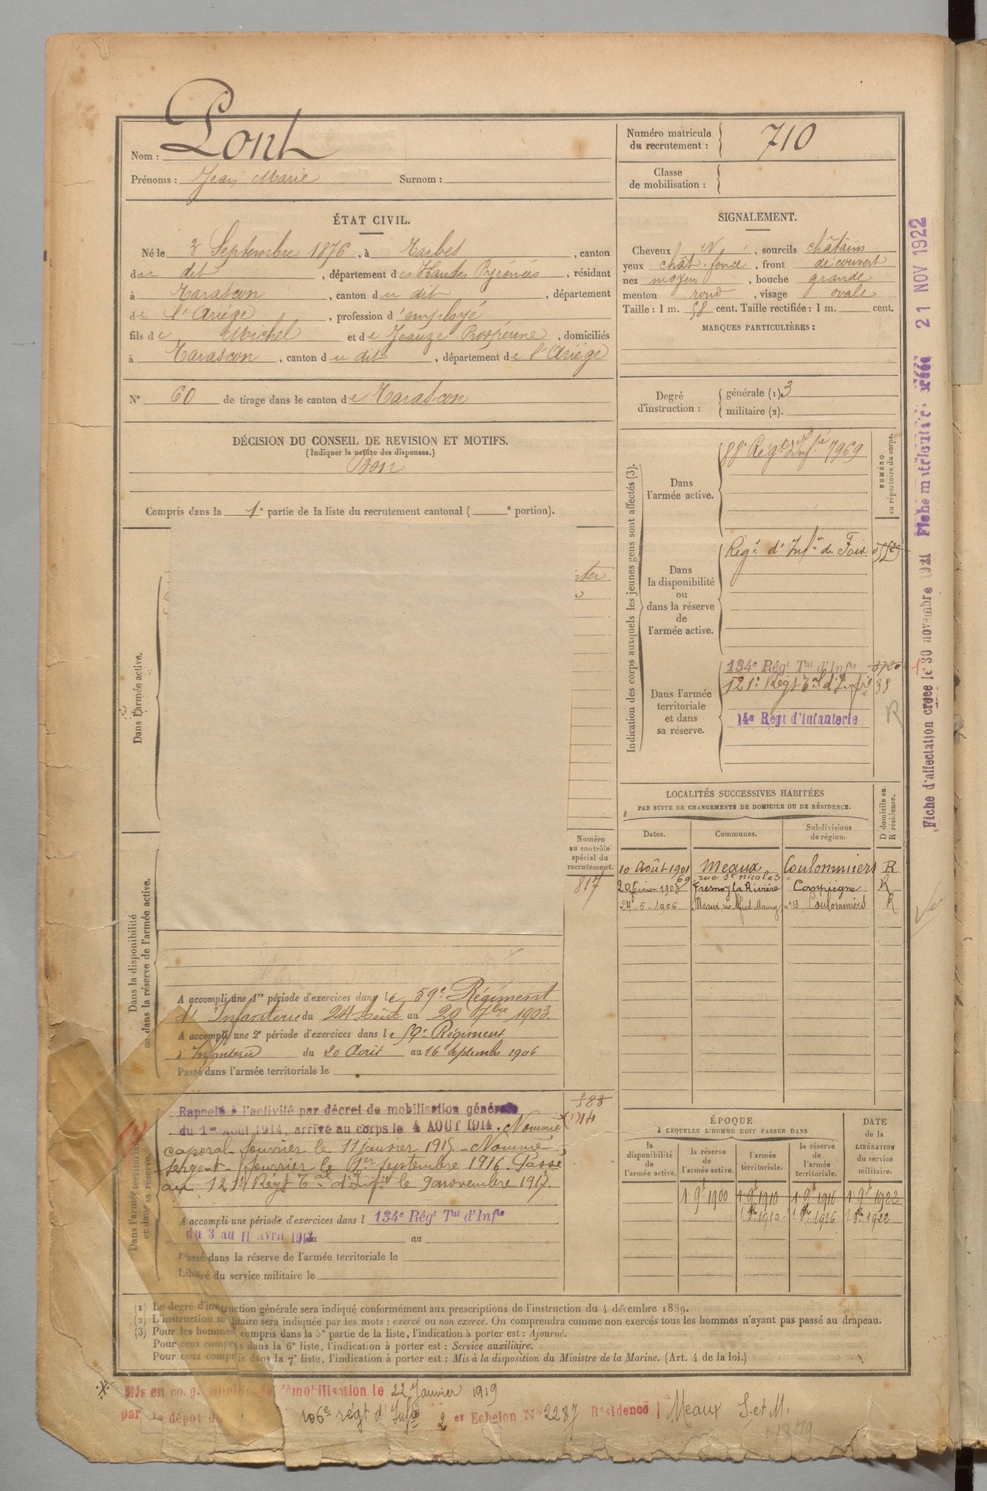 Nom : Pont
Prénoms : Jean Marie Surnom :
Numéro matricule du recrutement : 710
Classe de mobilisation :
ÉTAT CIVIL.
Né le 3 Septembre 1876, à Tarbes, canton
du dit, département des Hautes Pyrénées, résidant
à Tarascon, canton du dit, département
de l'Ariège, profession d'employé
fils de Michel et de Jeauze Prospérine, domiciliés
à Tarascon, canton du dit, département de l'Ariège
N° 60 de tirage dans le canton de Tarascon
SIGNALEMENT.
Cheveux N, sourcils châtains
yeux chât. foncé, front découvert
nez moyen, bouche grande
menton rond, visage ovale
Taille : 1 m. 58 cent. Taille rectifiée : 1 m. cent.
MARQUES PARTICULIÈRES :
Degré d'instruction : générale (1). 3
militaire (2).
DÉCISION DU CONSEIL DE REVISION ET MOTIFS.
(Indiquer la nature des dispenses.)
Bon
Compris dans la 1e partie de la liste du recrutement cantonal ( e portion).
Indication des corps auxquels les jeunes gens sont affectés (3).
NUMÉRO au répertoire du corps.
Dans l'armée active.
88e Régt d'Infie 7969
Dans la disponibilité ou dans la réserve de l'armée active.
Régt d'Infie de Foix
Dans l'armée territoriale et dans sa réserve.
134e Régt Tal d'Infie
121e Régt Tal d'Infie
14e Régt d'Infanterie
R
LOCALITÉS SUCCESSIVES HABITÉES
PAR SUITE DE CHANGEMENTS DE DOMICILE OU DE RÉSIDENCE.
Dates. Communes. Subdivisions de région. D domicile ou R résidence.
10 Août 1901 Meaux Coulommiers R
rue St Nicolas 69
Fresnoy la Rivière Compiègne R
24-5-1906 Meaux Coulommiers R
Dans l'armée active.
Numéro au contrôle spécial du recrutement.
817
Dans la disponibilité ou dans la réserve de l'armée active.
A accompli une 1re période d'exercices dans le 59e Régiment
d'Infanterie du 24 Août au 20 7bre 1903.
A accompli une 2e période d'exercices dans le 59e Régiment
d'Infanterie du 20 Août au 16 Septembre 1906
Passé dans l'armée territoriale le
Dans l'armée territoriale et dans sa réserve.
Rappelé à l'activité par décret de mobilisation générale
du 1er Août 1914, arrivé au corps le 4 AOUT 1914. Nommé
caporal fourrier le 11 janvier 1915. Nommé
sergent fourrier le 1er septembre 1916. Passé
au 121e Régt Tal d'Infie le 9 novembre 1917.
A accompli une période d'exercices dans l 134e Régt Tal d'Infie
du 3 au 11 Avril 191 au
Passé dans la réserve de l'armée territoriale le
Libéré du service militaire le
ÉPOQUE
A LAQUELLE L'HOMME DOIT PASSER DANS
la disponibilité de l'armée active. la réserve de l'armée active. l'armée territoriale. la réserve de l'armée territoriale. DATE de la LIBÉRATION du service militaire.
1 9e 1900 1 9e 1910 1 9e 1916 1 9e 1922
(1) Le degré d'instruction générale sera indiqué conformément aux prescriptions de l'instruction du 4 décembre 1889.
(2) L'instruction militaire sera indiquée par les mots : exercé ou non exercé. On comprendra comme non exercés tous les hommes n'ayant pas passé au drapeau.
(3) Pour les hommes compris dans la 5e partie de la liste, l'indication à porter est : Ajourné.
Pour ceux compris dans la 6e liste, l'indication à porter est : Service auxiliaire.
Pour ceux compris dans la 7e liste, l'indication à porter est : Mis à la disposition du Ministre de la Marine. (Art. 4 de la loi.)
Mis en congé démobilisation le 22 Janvier 1919
par le dépôt du 106e régt d'Infie 2 er Echelon N° 2287 Résidence Meaux S.et M.
Fiche d'affectation créée le 30 novembre 1921 Fiche matriculaire créée 21 NOV 1922